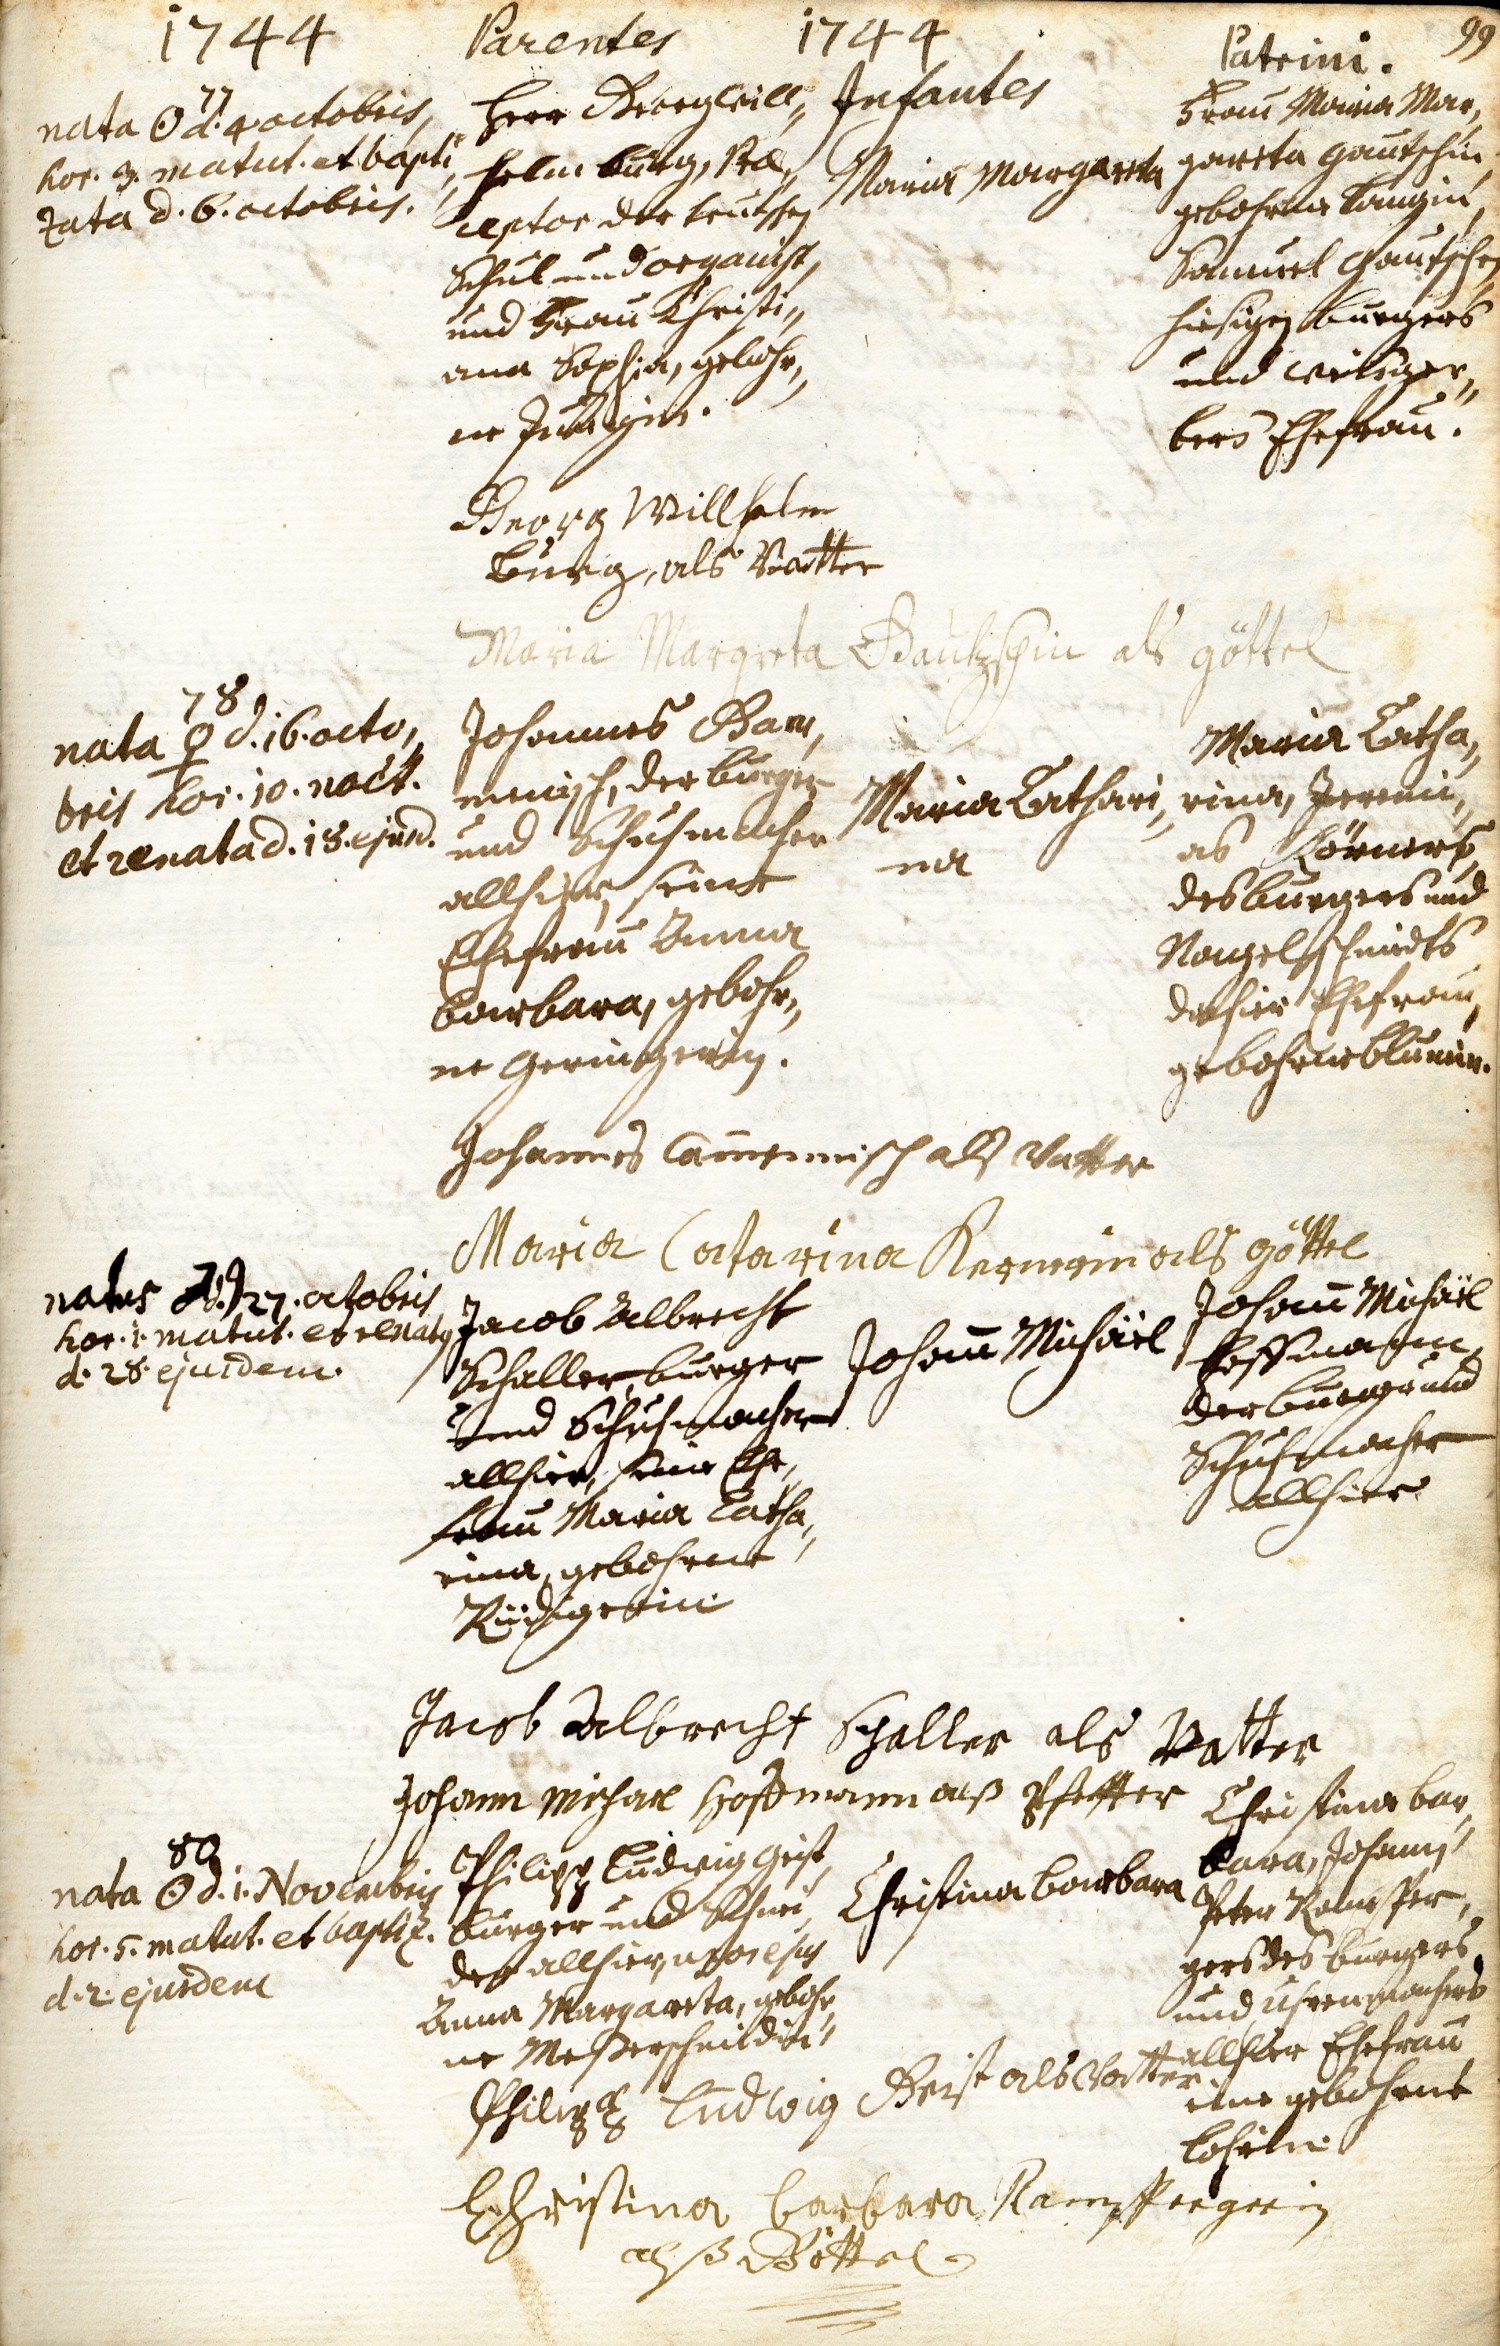 1744
Parentes
1744
Infantes
Patrini.
99
77
nata ☉ d. 4 octobris,
hor. 3. matut. et bapti,,
zata d. 6. octobris.
Herr Georg Will,,
helm Burg, Præ,
ceptor der teutschen
Schul und organist,
und Frau Christi,,
ana Sophia, gebohr,,
ne
Maria Margareta
Frau Maria Mar,,
gareta Gautschin,
gebohrne Langin,
Samuel Gautschen
hiesigen burgers
und weisger,,
bers Ehefrau.
Georg Willhelm
Burg, als Vatter
Maria Margreta Gautzschin als göttel
78
nata ☿ d. 16. octo,,
bris hor. 10. noct.
et renata d. 18. ejusd.
Johannes Gam,
menisch, der burger
und Schuhmacher
allhier, seine
Ehefrau Anna
barbara, gebohr,,
ne Geringerin.
Maria Cathari,,
na
Maria Catha,,
rina, Jeremi,,
as Körners,
des burgers und
Nagelschmidts
dahier Ehefrau,
gebohrne Blumin.
Johannes Camenisch als Vatter
Maria Catarina Kernerin als göttel
natus d. 27. octobris
hor. 1. matut. et renatus
d. 28. ejusdem.
Jacob Albrecht
Schaller, burger
und Schuhmacher
allhier, seine Ehe,,
frau Maria Catha,,
rina, gebohrne
Rüdigerin
Johann Michäel
Johann Michäel
Hoffmann,
der burger und
Schuhmacher
allhier
Jacob Albrecht Schaller als Vatter
Johann Michael Hoffmann alß Pfetter
80
nata ☉ d. 1. Novembris
hor. 5. matut. et baptiz.
d. 2. ejusdem
Philipp Ludwig Geist,
burger und Schnei,
der allhier, uxor ejus
Anna Margareta, gebohr,,
ne Meßerschmidin
Christina barbara
Christina bar,,
bara, Johann
Peter Rampffer,,
gers des burgers
und Uhrenmachers
allhier Ehefrau
eine gebohrne
Philipp Ludwig Geist als Vatter
Christina barbara Rampffergerin
alß Göttel